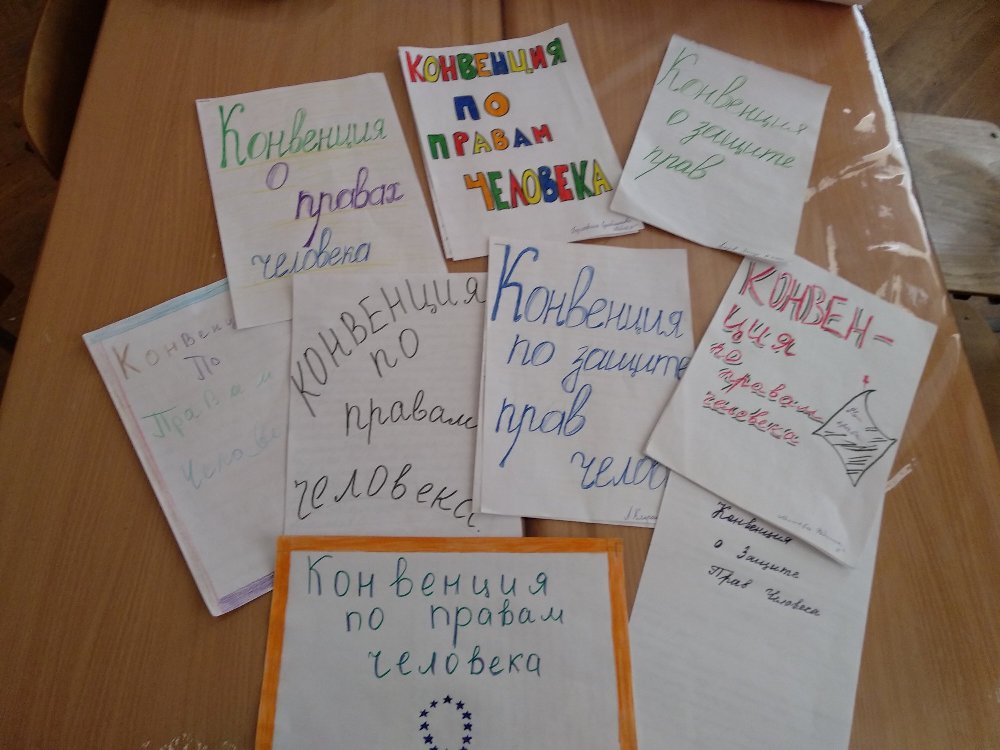 Конвенция
о
правах
человека
КОНВЕНЦИЯ
ПО
ПРАВАМ
ЧЕЛОВЕКА
Конвенция
о защите
прав
Конвенц
По
Правам
Челове
КОНВЕНЦИЯ
ПО
правам
человека
Конвенция
по защите
прав
челов
КОНВЕН-
ЦИЯ
по
правам
человека
Конвенция
о Защите
Прав Человека
Конвенция
по правам
человека